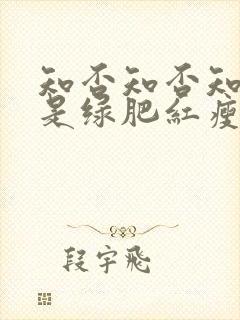 知否知否知
是绿肥红瘦
段宇飛